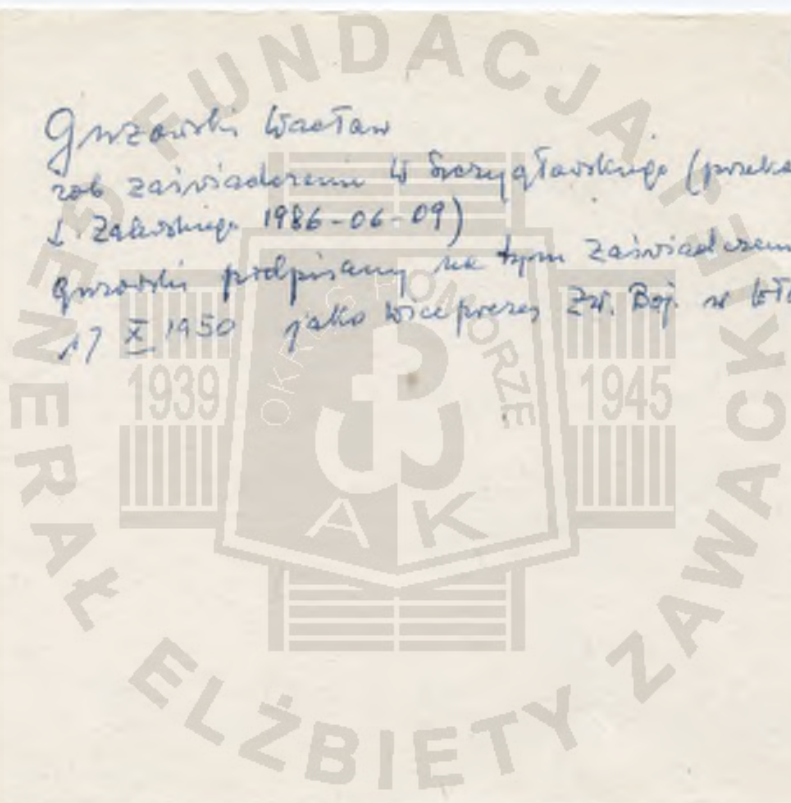 Guzowski Wacław
zob zaświadczenie W Szczygławskiego (przeka
J. Zalewskiego 1986-06-09)
Guzowski podpisany na tym zaświadczeniu
17 X 1950 jako wiceprezes Zw. Boj. w Wło
FUNDACJA
GENERAŁ ELŻBIETY ZAWACKIEJ
OKRĘG POMORZE
1939
1945
AK